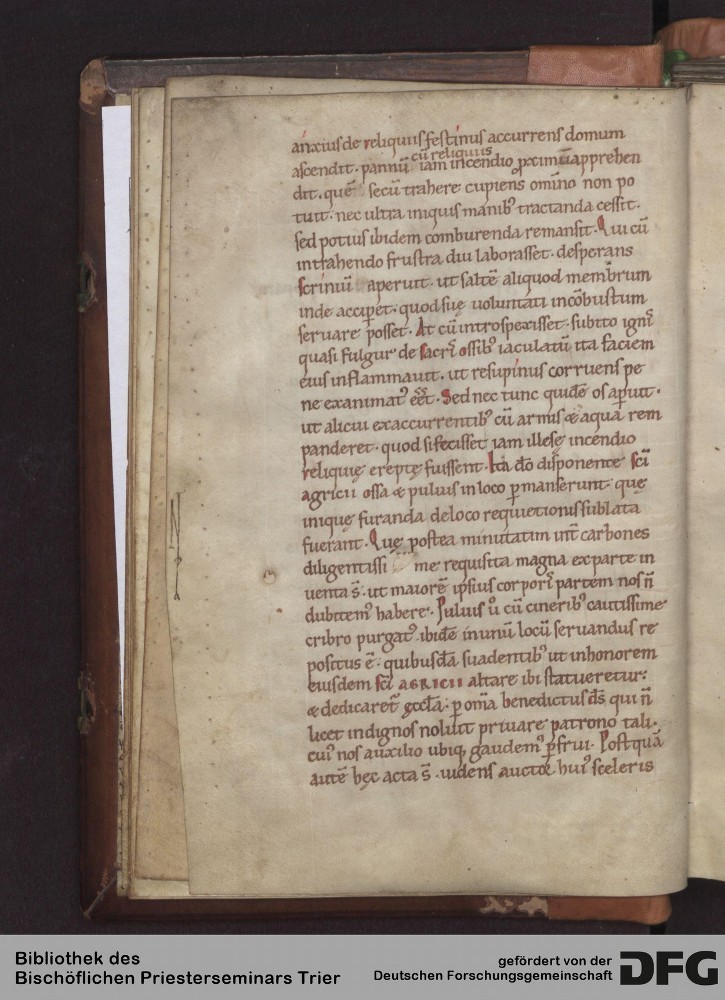 anxius de reliquiis festinus accurrens domum
cū reliquiis
ascendit. pannū iam incendio ꝓximū apprehen
dit. quē secū trahere cupiens omīno non po
tuit. nec ultra iniquis manib; tractanda cessit.
sed potius ibidem comburenda remansit. Qui cū
in trahendo frustra diu laborasset. desperans
scriniū aperuit. ut saltē aliquod membrum
inde acciperet. quod suę uoluntati incōbustum
seruare posset. At cū introspexisset. subito igni
quasi fulgur de sacri ossib; iaculatū ita faciem
eius inflammauit. ut resupinus corruens pe
ne exanimatꝰ eēt. Sed nec tunc quidē os aꝑuit.
ut alicui ex accurrentib; cū armis & aqua rem
panderet. quod si fecisset iam illesę incendio
reliquię ereptę fuissent. Ita dō disponente sci
agricii ossa & puluis in loco ꝑmanserunt. quę
inique furanda de loco requietionis sublata
fuerant. Quę postea minutatim int̄ carbones
diligentissi me requisita magna ex parte in
uenta s̄. ut maiorē ipsius corporis partem nos n̄
dubitemꝰ habere. Puluis ū cū cinerib; cautissime
cribro purgatꝰ. ibidē in unū locū seruandus re
positus ē. quibusdā suadentib; ut in honorem
eiusdem sci AGRICII altare ibi statueretur.
& dedicaretᷣ ęccl̄a. ꝑ om̄a benedictus d̄s qui n̄
licet indignos noluit priuare patrono tali.
cuiꝰ nos auxilio ubiq; gaudemꝰ ꝑfrui. Postquā
autē hęc acta s̄. uidens auctor huiꝰ sceleris
Bibliothek des
Bischöflichen Priesterseminars Trier
gefördert von der
Deutschen Forschungsgemeinschaft
DFG